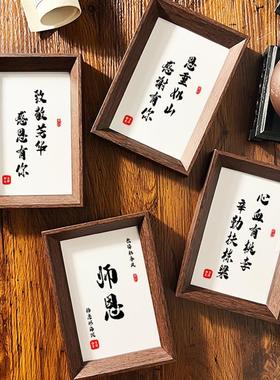 致敬芳华
感恩有你
恩重如山
感谢有你
师恩
心血育桃李
辛勤扶栋梁